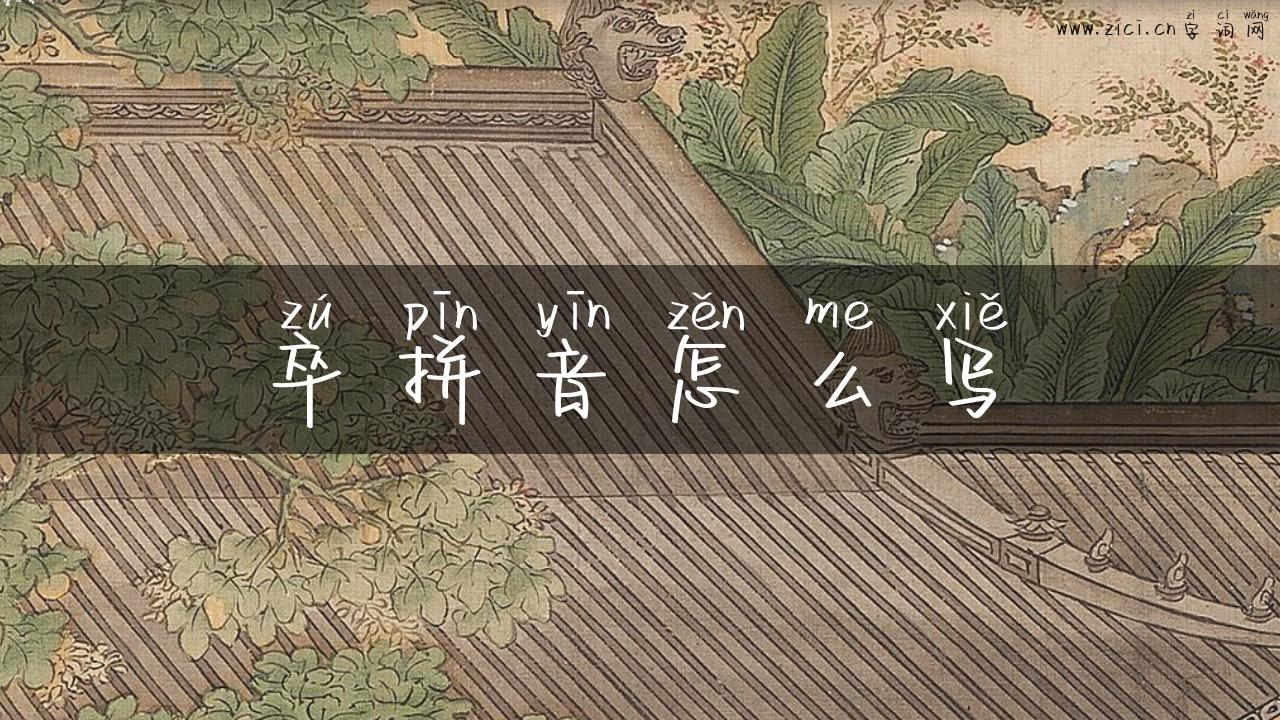 zì cí wǎng
www.zici.cn 字词网
zú pīn yīn zěn me xiě
卒拼音怎么写